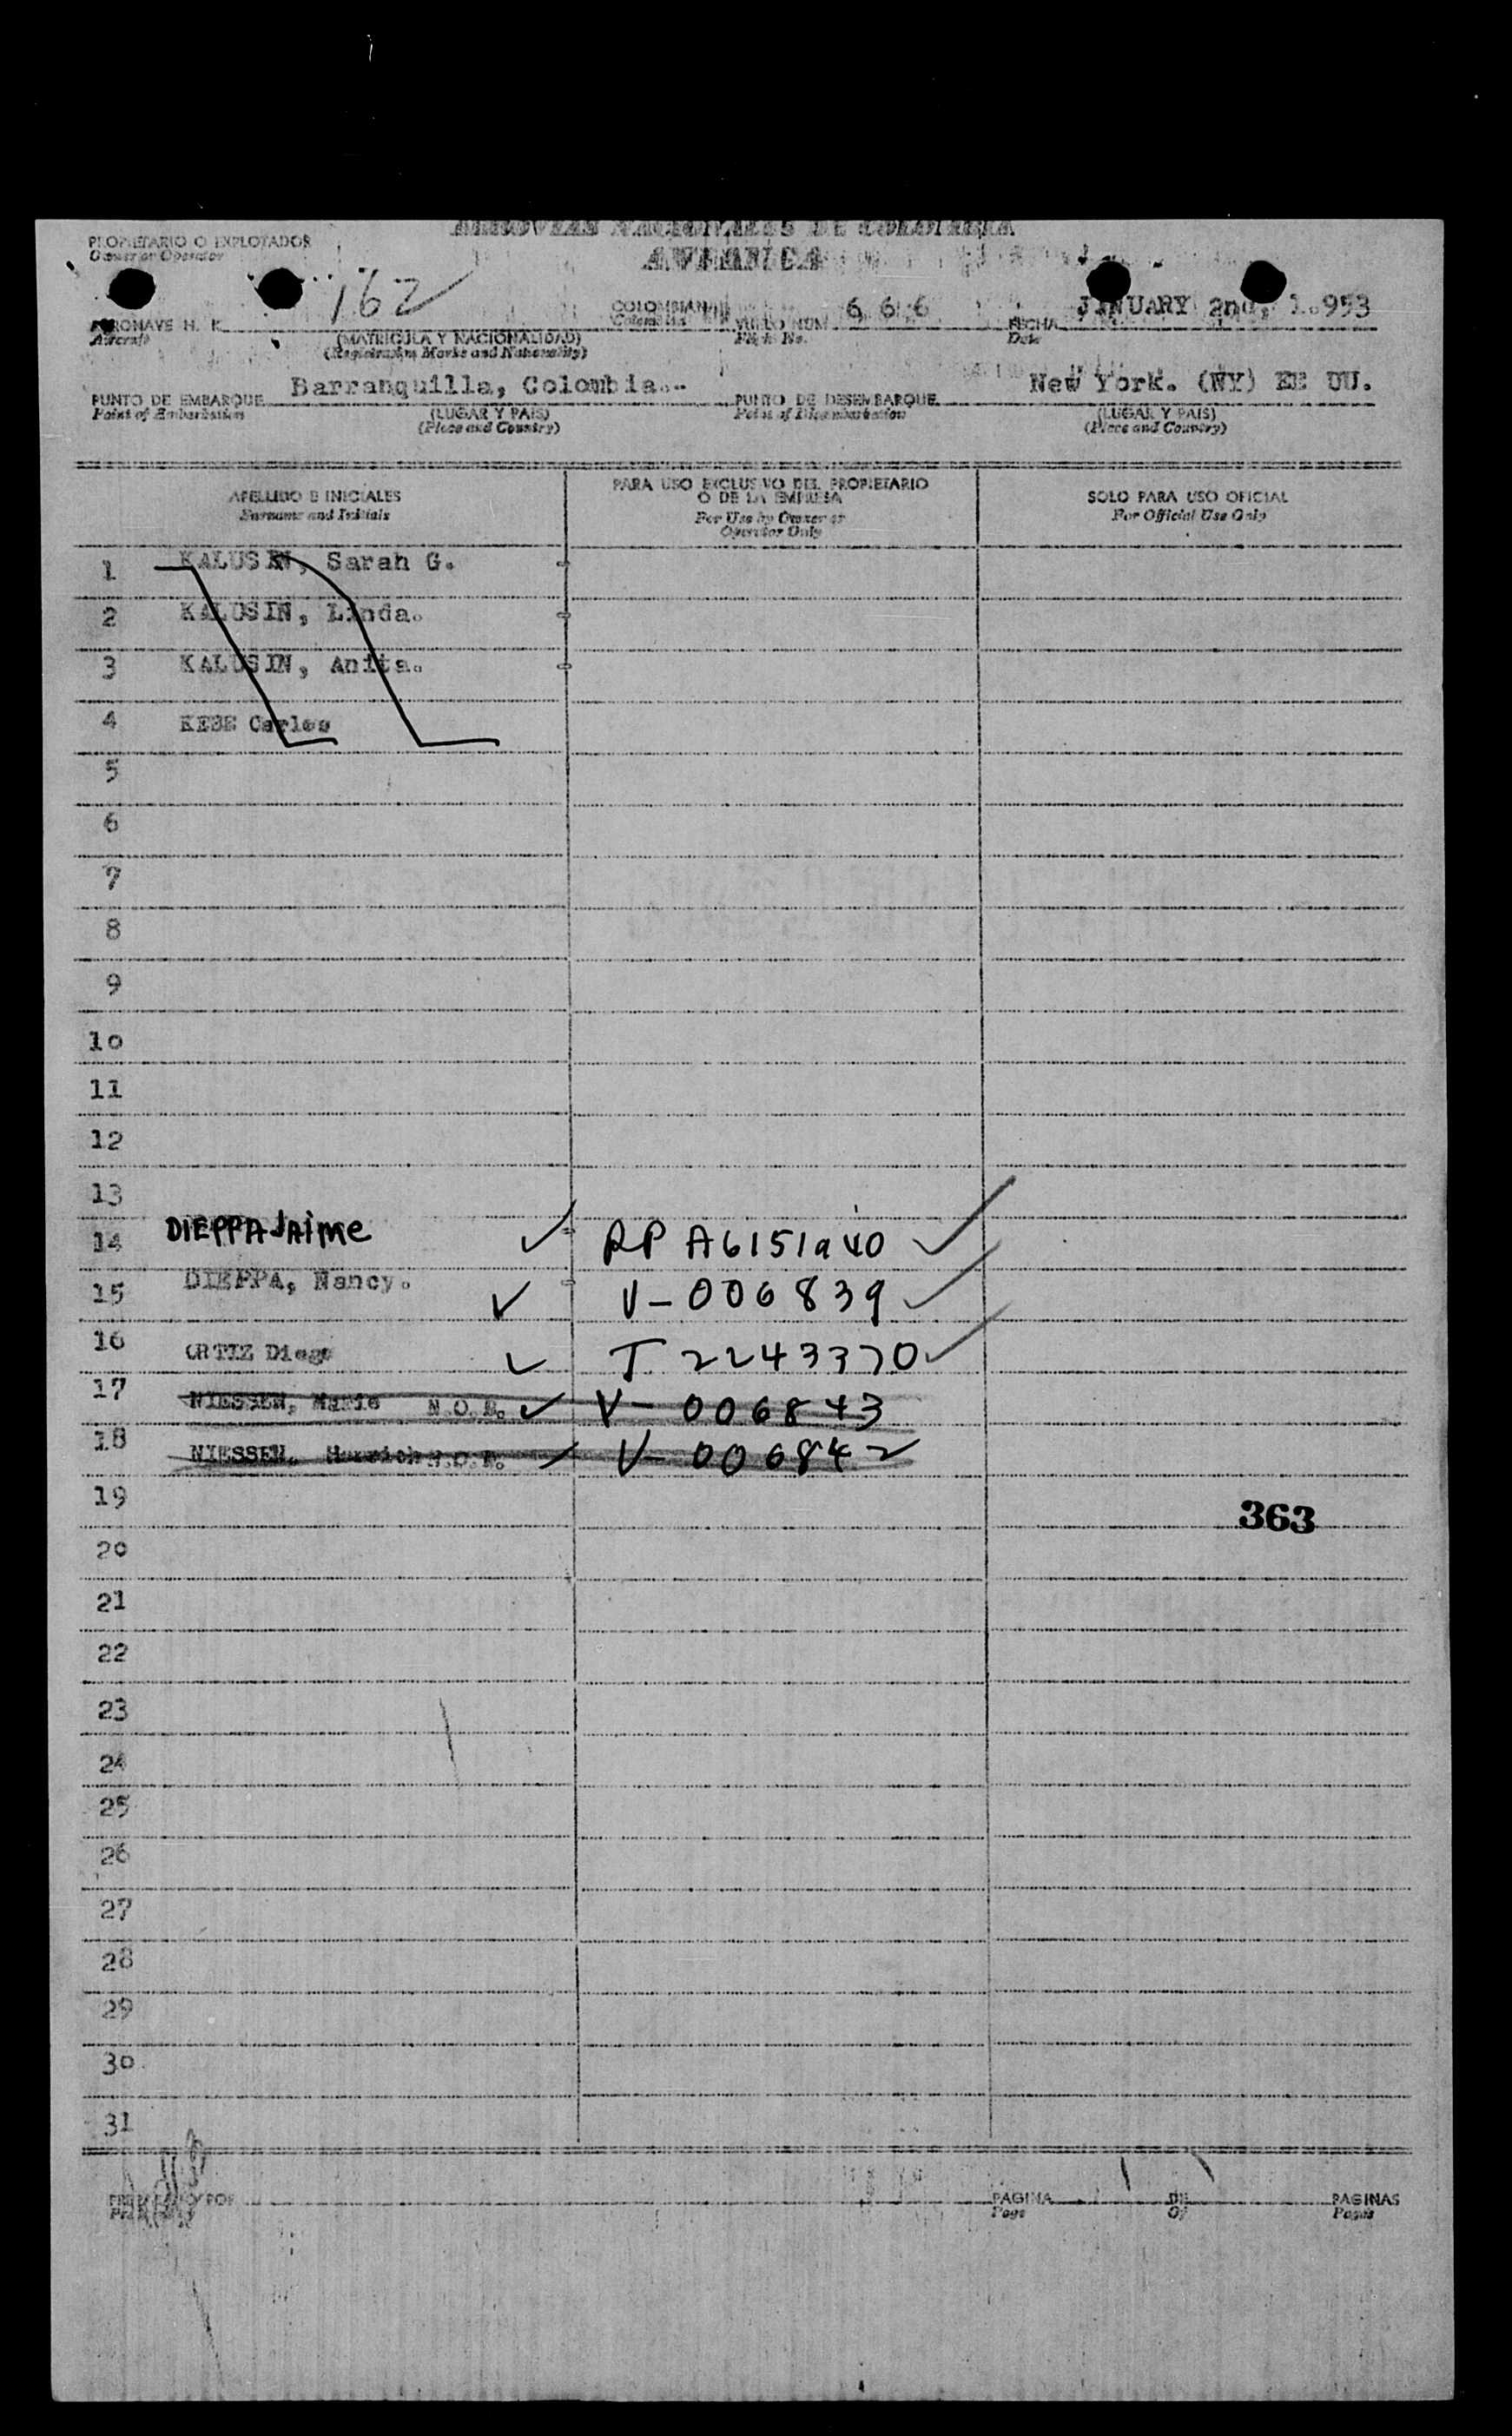 PROPIETARIO O EXPLOTADOR
Owner or Operator
AEROVIAS NACIONALES DE COLOMBIA
AVIANCA
162
AERONAVE H. K.
Aircraft
(MATRICULA Y NACIONALIDAD)
(Registration Marks and Nationality)
COLOMBIANA
Colombian
VUELO NUM.
Flight No.
6 6 6
FECHA
Date
JANUARY 2nd, 1.953
PUNTO DE EMBARQUE
Point of Embarkation
Barranquilla, Colombia.-
(LUGAR Y PAIS)
(Place and Country)
PUNTO DE DESEMBARQUE
Point of Disembarkation
New York. (NY) EE UU.
(LUGAR Y PAIS)
(Place and Country)
APELLIDO E INICIALES
Surname and Initials
PARA USO EXCLUSIVO DEL PROPIETARIO
O DE LA EMPRESA
For Use by Owner or
Operator Only
SOLO PARA USO OFICIAL
For Official Use Only
1 KALUSIN, Sarah G.
2 KALUSIN, Linda.
3 KALUSIN, Anita.
4 Carlos
5
6
7
8
9
10
11
12
13
14 DIEPPA JAime RP A6151940
15 DIEPPA, Nancy. V-006839
16 ORTIZ Diego T 2243370
17 NIESSEN, Marie N.O.B. V-006843
18 NIESSEN, N.O.B. V-006842
19
363
20
21
22
23
24
25
26
27
28
29
30
31
PREPARADO POR
Prepared by
PAGINA
Page
DE
Of
PAGINAS
Pages